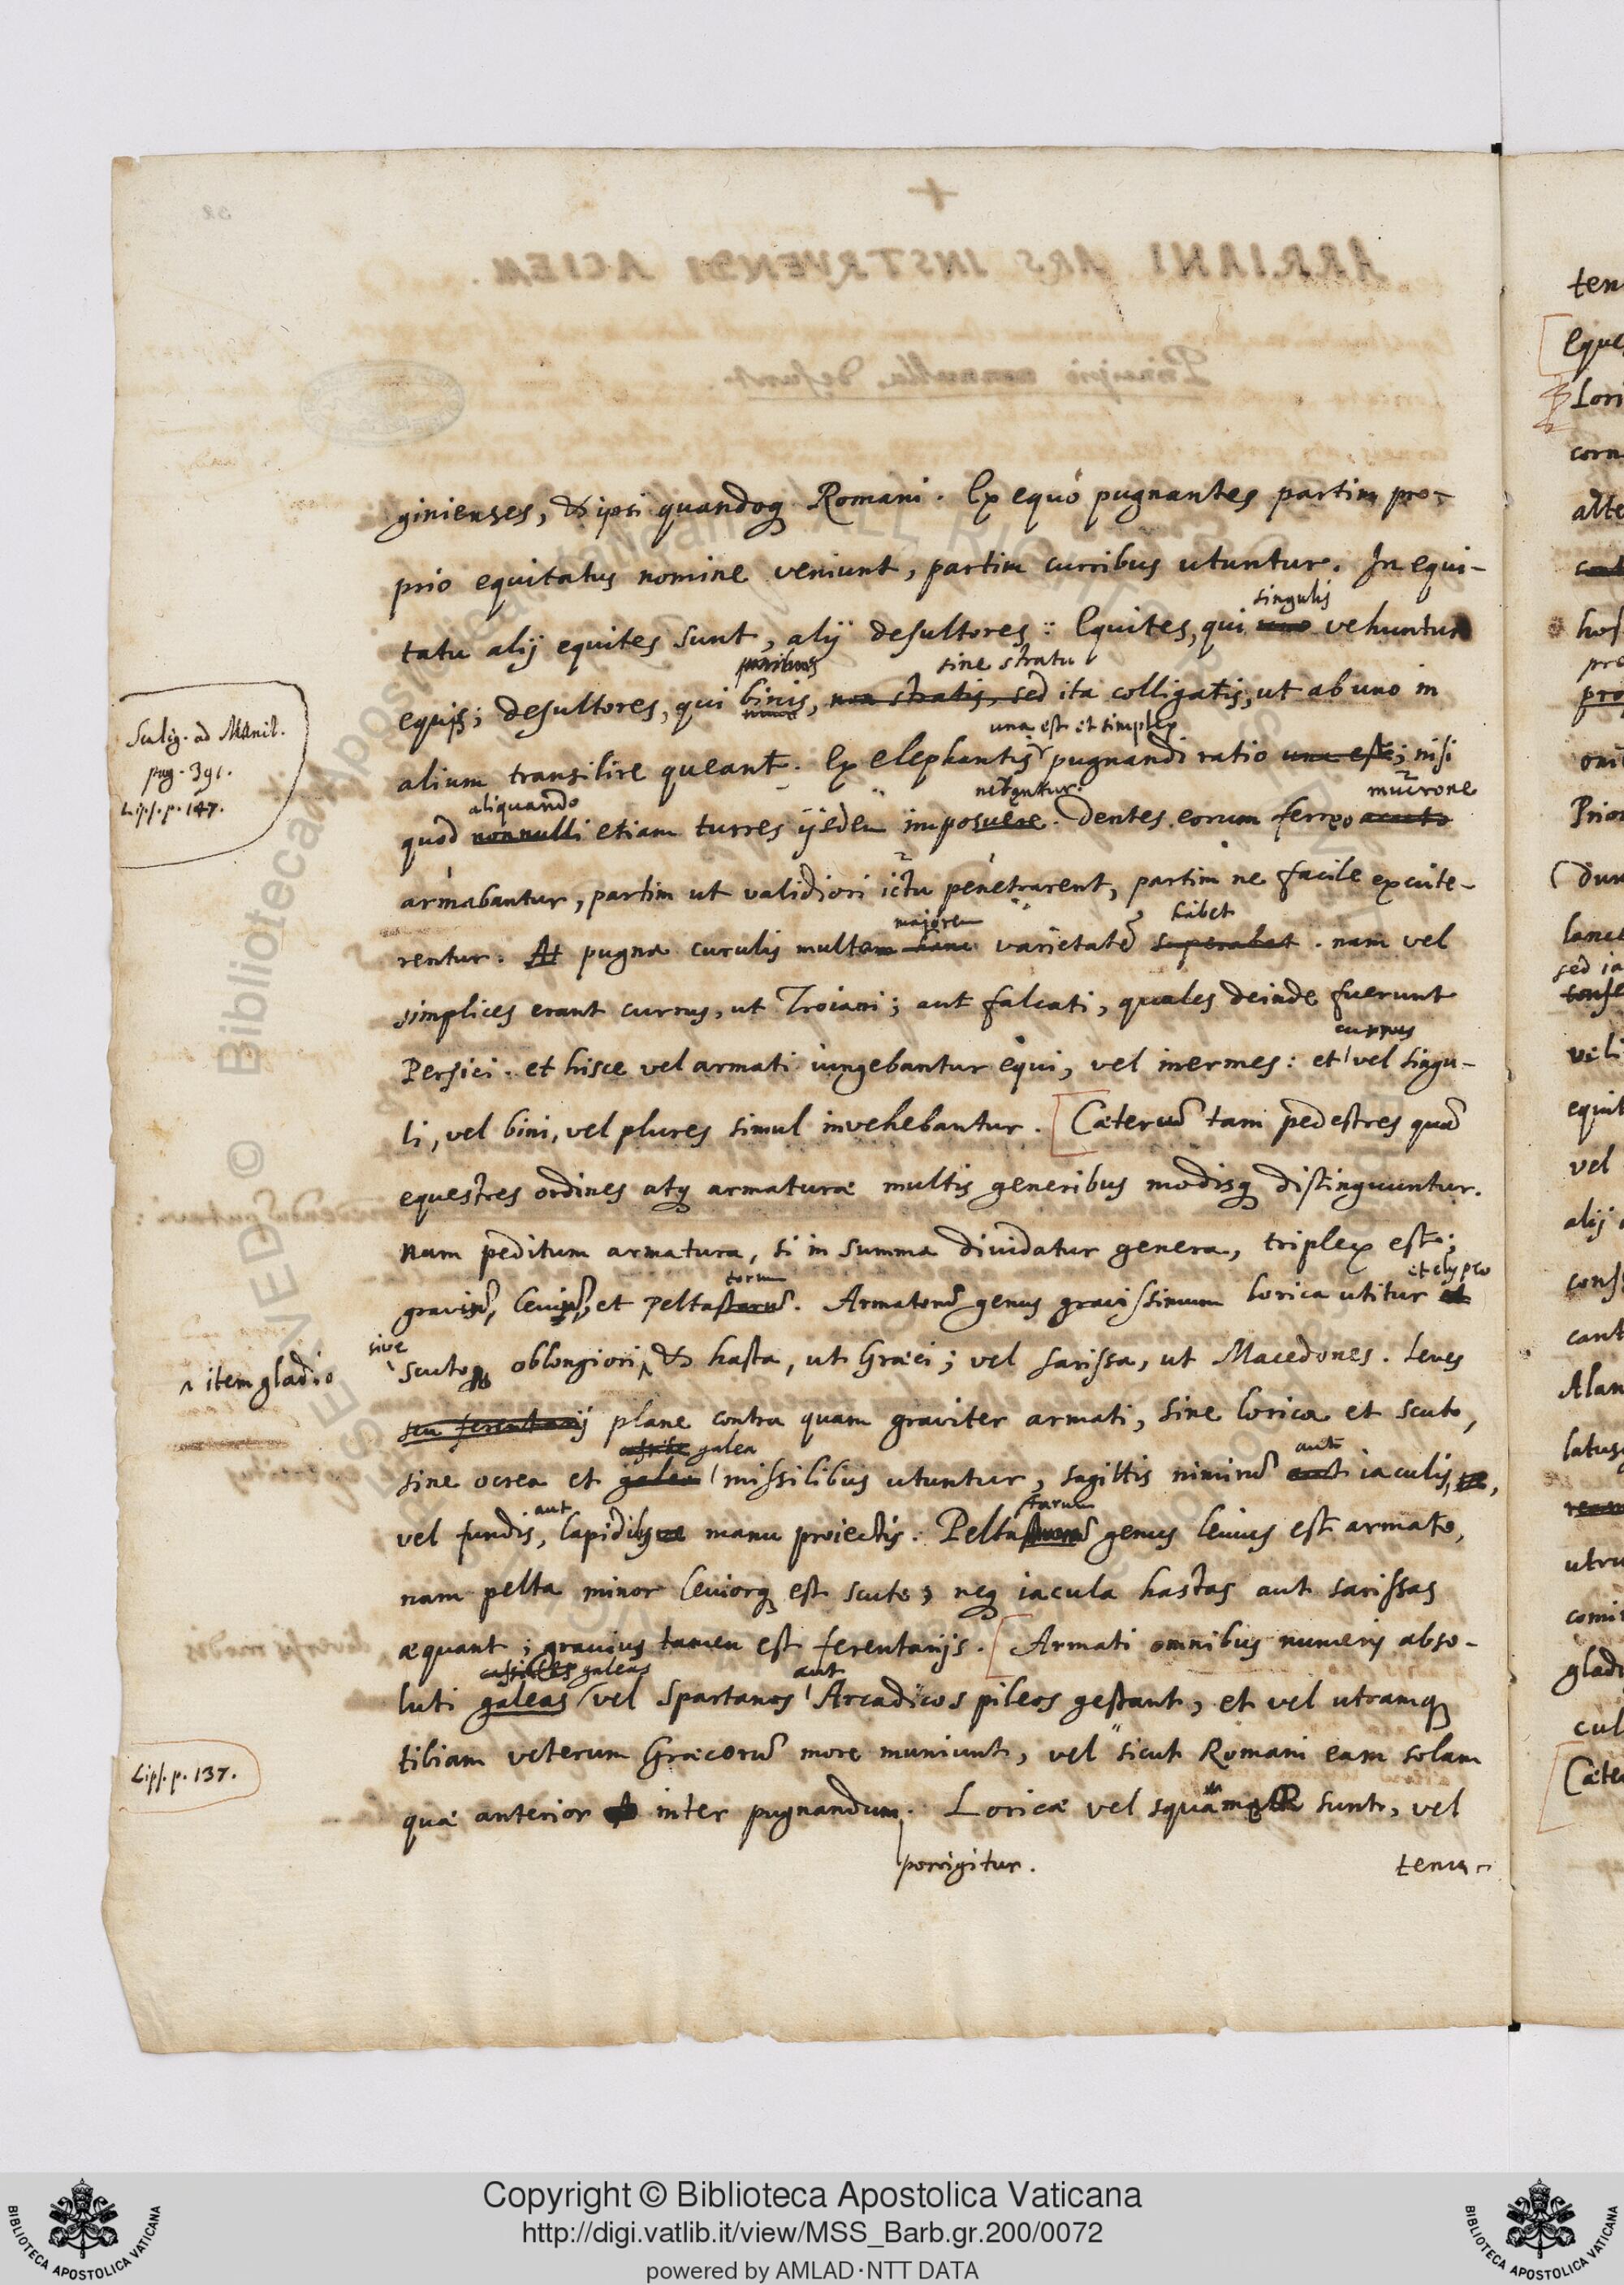 ginienses, & ipsi quandoq Romani. Ex equo pugnantes partim pro-
prio equitatus nomine veniunt, partim curribus utuntur. In equi-
singulis
tatu alij equites sunt, alij desultores: Equites, qui uno vehuntur
paribus sine stratu
equis; desultores, qui binis, non stratis, sed ita colligatis, ut ab uno in
una est et simplex
alium transilire queant. Ex elephantis pugnandi ratio una est; nisi
aliquando mucrone
quod nonnulli etiam turres ijsdem imposuere. Dentes eorum ferreo acuto
armabantur, partim ut validiori ictu penetrarent, partim ne facile excute-
majorem habet
rentur. At pugna curulis multam hanc varietatē superabat. nam vel
simplices erant currus, ut Troiani; aut falcati, quales deinde fuerunt
currus
Persici. et hisce vel armati iungebantur equi, vel inermes: et vel singu-
li, vel bini, vel plures simul invehebantur. [Cæterum̄ tam pedestres quā
equestres ordines atq armaturæ multis generibus modisq distinguuntur.
Nam peditum armatura, si in summa dividatur genera, triplex est;
torum et clypeo
gravium, levium, et peltastarum. Armatorum genus gravissimum lorica utitur et
sive
scuto oblongiori, & hasta, ut Græci; vel sarissa, ut Macedones. Leves
^ item gladio
seu ferentarij plane contra quam graviter armati, sine lorica et scuto,
casside galea aut
sine ocrea et galea missilibus utuntur, sagittis nimirū aut iaculis,
aut starum
vel fundis, lapidibus manu proiectis. Peltastarū genus levius est armato,
nam pelta minor leviorq est scuto; neq iacula hastas aut sarissas
æquant; gravius tamen est ferentarijs. [Armati omnibus numeris abso-
cassides galeas aut
luti galeas vel Spartanos Arcadicos pileos gestant, et vel utramq
tibiam veterum Græcorū more muniunt, vel sicut Romani eam solam
quæ anterior inter pugnandum. Loricæ vel sunt, vel
porrigitur.
tenu-
Scalig. ad Manil.
pag. 391.
Lips. p. 147.
Lips. p. 137.
Copyright © Biblioteca Apostolica Vaticana
http://digi.vatlib.it/view/MSS_Barb.gr.200/0072
powered by AMLAD·NTT DATA
BIBLIOTECA APOSTOLICA VATICANA
BIBLIOTECA APOSTOLICA VATICANA